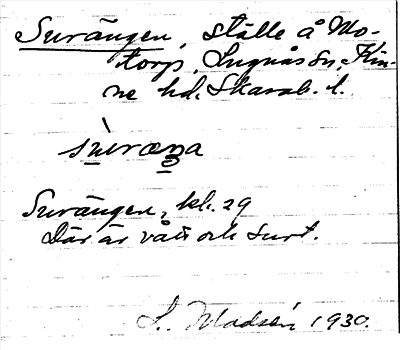 Surängen, ställe å Mo-
torp, Lugnås sn, Kin-
ne hd. Skarab. l.
Surängen, kl. 29
Där är vått och surt.
L. Madsén 1930.